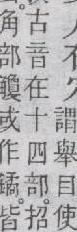 人不久謂舉目使
古音在十四部招
角部觼或作鐍皆